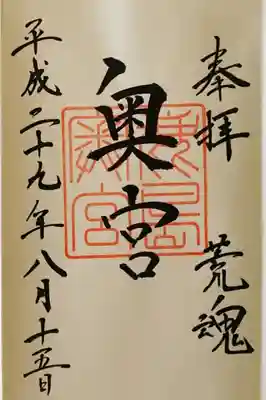 奉拝 荒魂
奥宮
平成二十九年八月十五日
鹿島奥宮